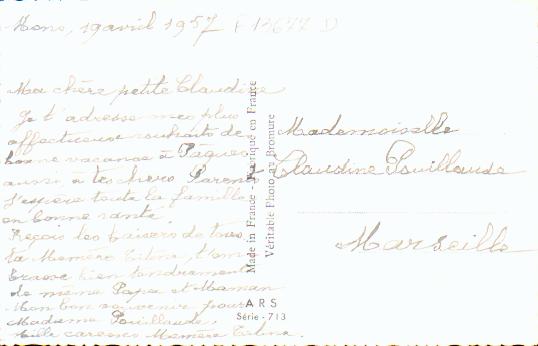 Mons, 19 avril 1957 F 13677 D
Ma chère petite Claudine
Je t'adresse mes plus
affectueux souhaits de
bonne vacance à Pâques
aussi à tes chers Parents
J'espère toute la famille
en bonne santé.
Reçois les baisers de
ta Mémère t'em
brasse bien tendrement
de même Papa et Maman
Mon bon souvenir pour
Madame Pouillaude,
Mille caresses Mémère
Made in France - Fabriqué en France
Véritable Photo au Bromure
ARS
Série - 713
Mademoiselle
Claudine Pouillaude
Marseille